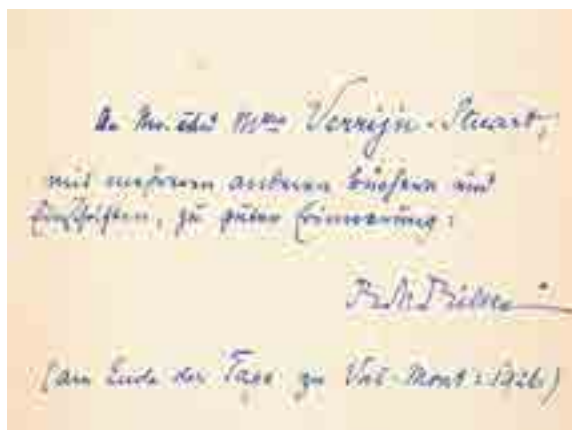 An Mr. und Mme Verrijn-Stuart,
mit mehreren anderen Büchern und
Einschriften, zu guter Erinnerung:
RM Rilke
(am Ende der Tage zu Val-Mont: 1926)